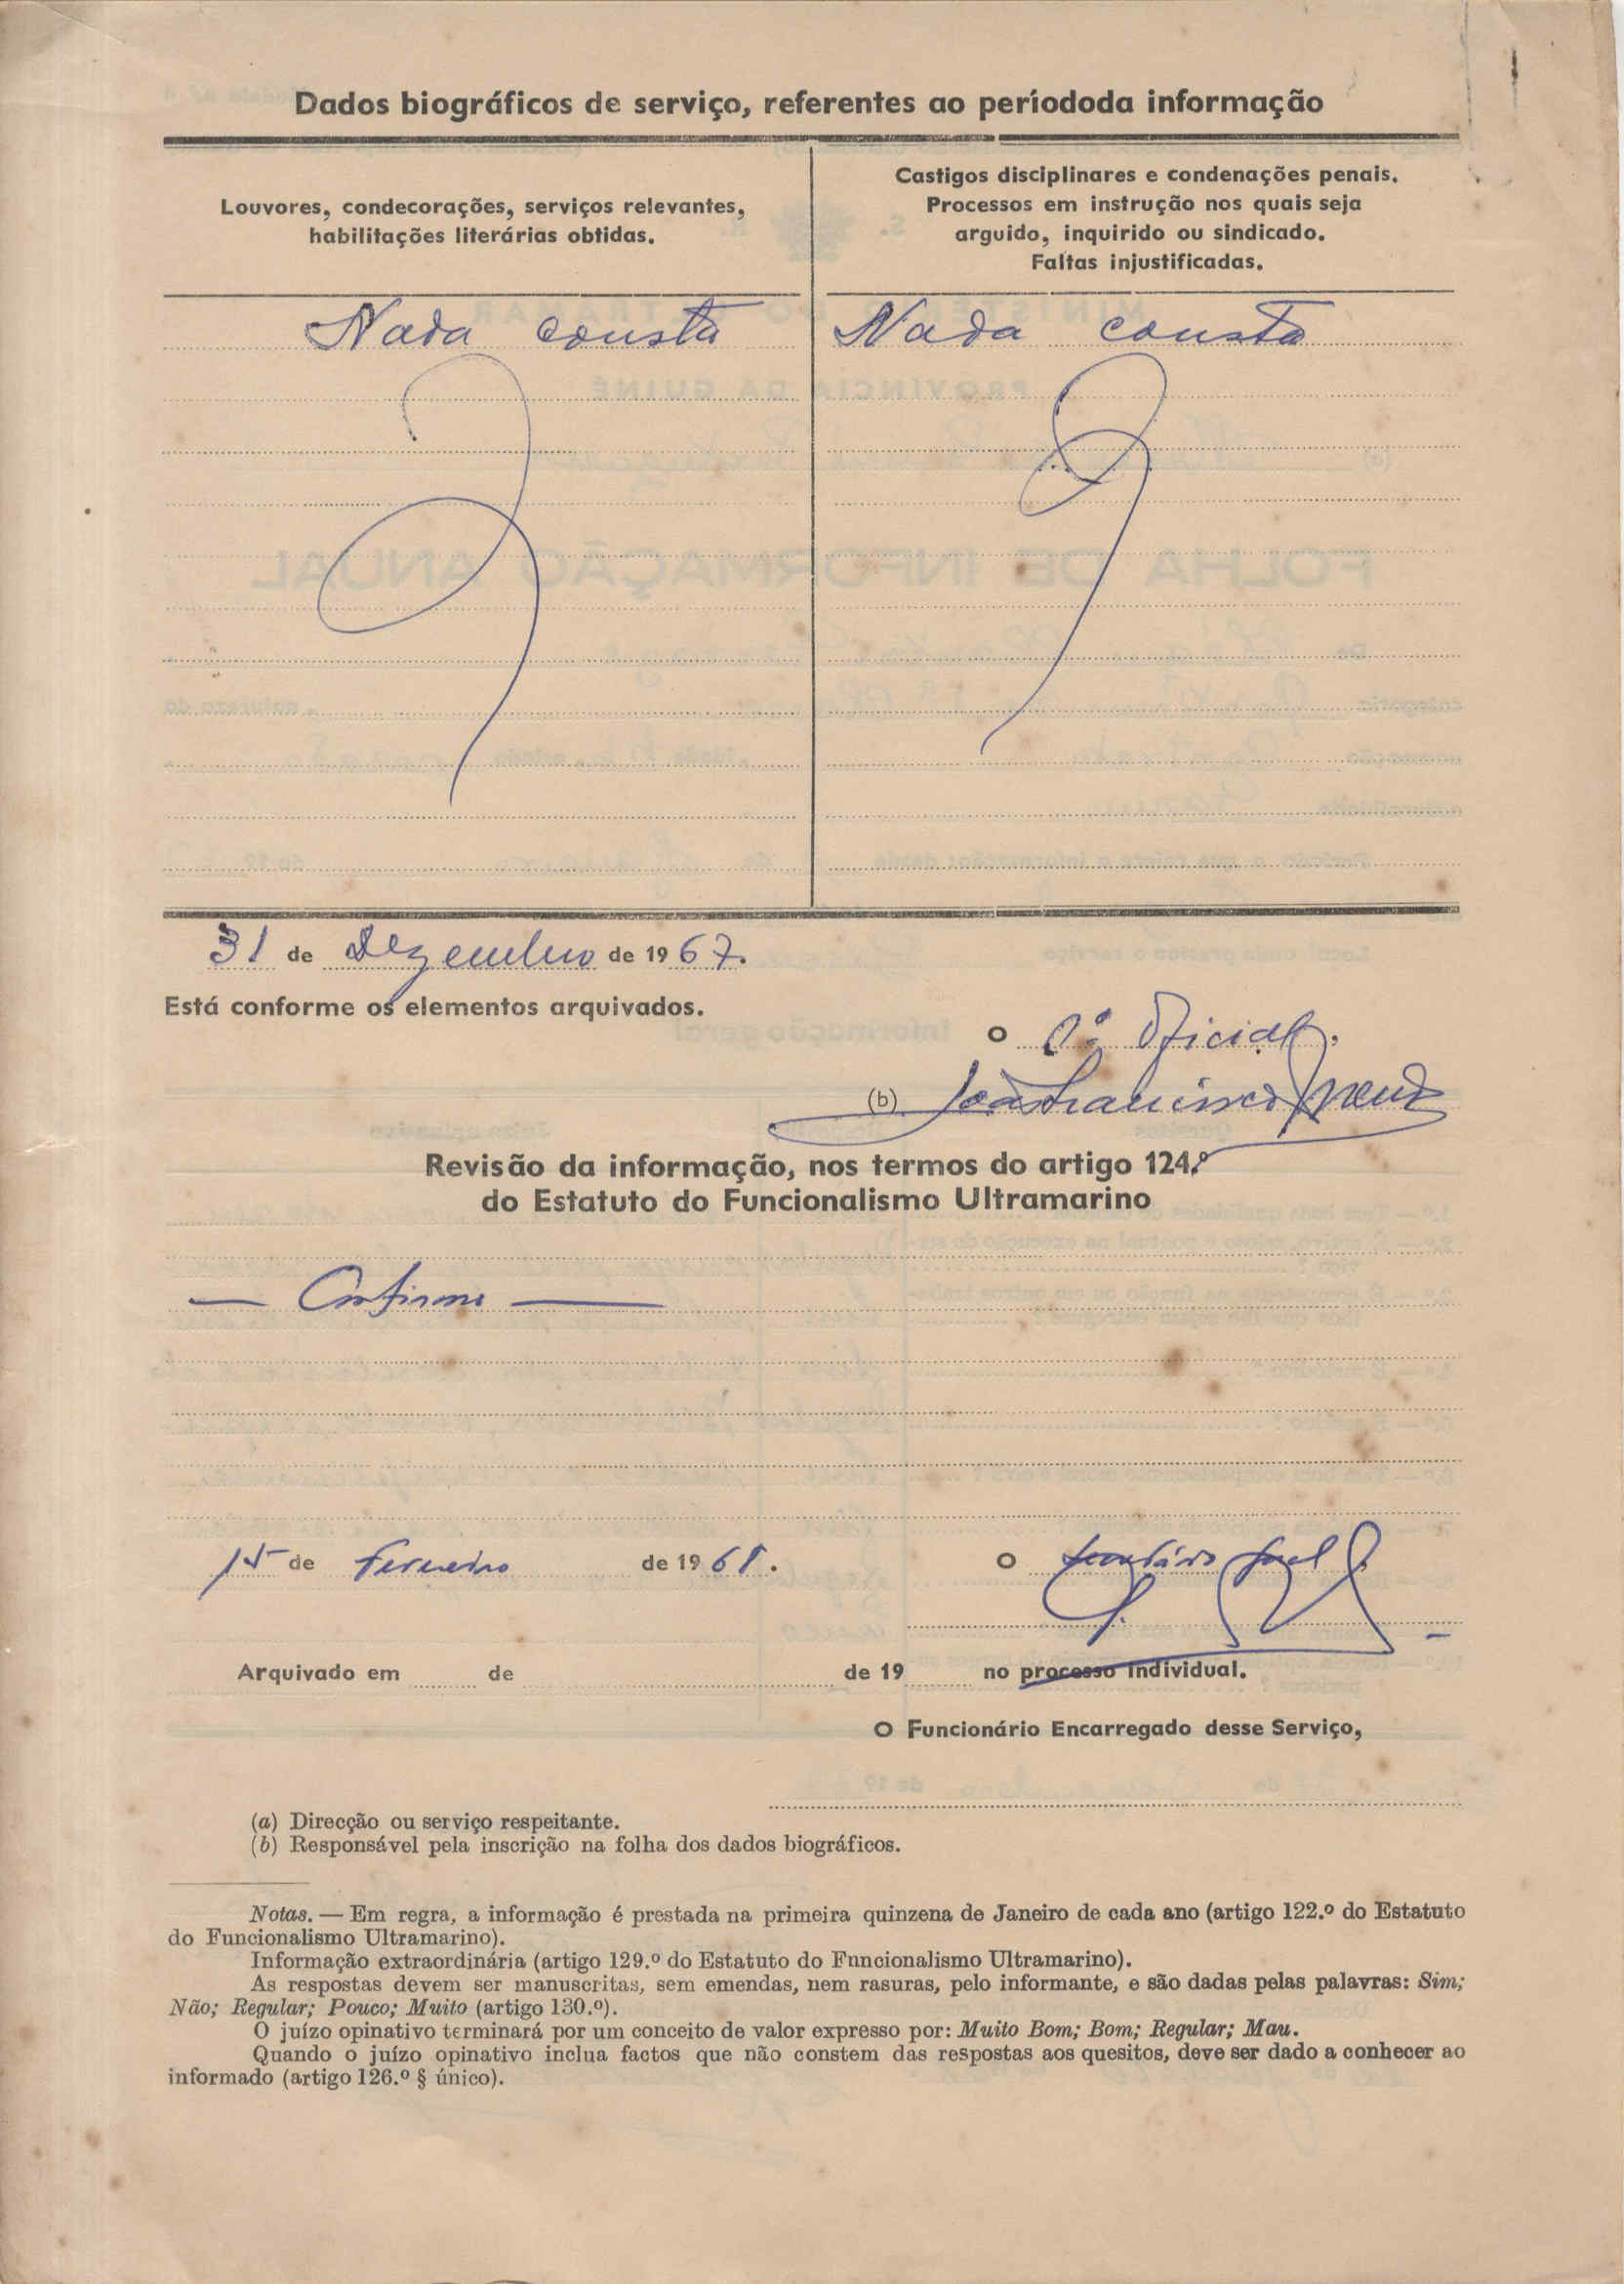 Dados biográficos de serviço, referentes ao períododa informação
Louvores, condecorações, serviços relevantes,
habilitações literárias obtidas.
Castigos disciplinares e condenações penais.
Processos em instrução nos quais seja
arguido, inquirido ou sindicado.
Faltas injustificadas.
Nada consta
Nada consta
31 de Dezembro de 1967.
Está conforme os elementos arquivados.
O 1.º Oficial,
(b) João Francisco
Revisão da informação, nos termos do artigo 124.º
do Estatuto do Funcionalismo Ultramarino
— Confirmo —
15 de Fevereiro de 1968.
O Secretário Geral
Arquivado em de de 19 no processo individual.
O Funcionário Encarregado desse Serviço,
(a) Direcção ou serviço respeitante.
(b) Responsável pela inscrição na folha dos dados biográficos.
Notas. — Em regra, a informação é prestada na primeira quinzena de Janeiro de cada ano (artigo 122.º do Estatuto
do Funcionalismo Ultramarino).
Informação extraordinária (artigo 129.º do Estatuto do Funcionalismo Ultramarino).
As respostas devem ser manuscritas, sem emendas, nem rasuras, pelo informante, e são dadas pelas palavras: Sim;
Não; Regular; Pouco; Muito (artigo 130.º).
O juízo opinativo terminará por um conceito de valor expresso por: Muito Bom; Bom; Regular; Mau.
Quando o juízo opinativo inclua factos que não constem das respostas aos quesitos, deve ser dado a conhecer ao
informado (artigo 126.º § único).